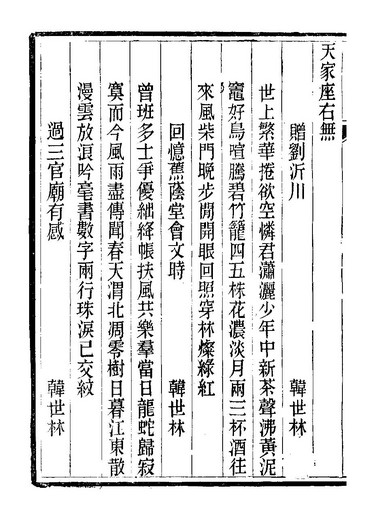 天家座右無
贈劉沂川　韓世林
世上繁華捲欲空憐君瀟灑少年中新茶聲沸黃泥
竈好鳥喧騰碧竹籠四五株花濃淡月兩三杯酒往
來風柴門晚步閒開眼回照穿林燦綠紅
回憶蕉蔭堂會文時　韓世林
曾班多士爭優絀絳帳扶風共樂羣當日龍蛇歸寂
寞而今風雨盡傳聞春天渭北凋零樹日暮江東散
漫雲放浪吟毫書數字兩行珠淚已交紋
過三官廟有感　韓世林